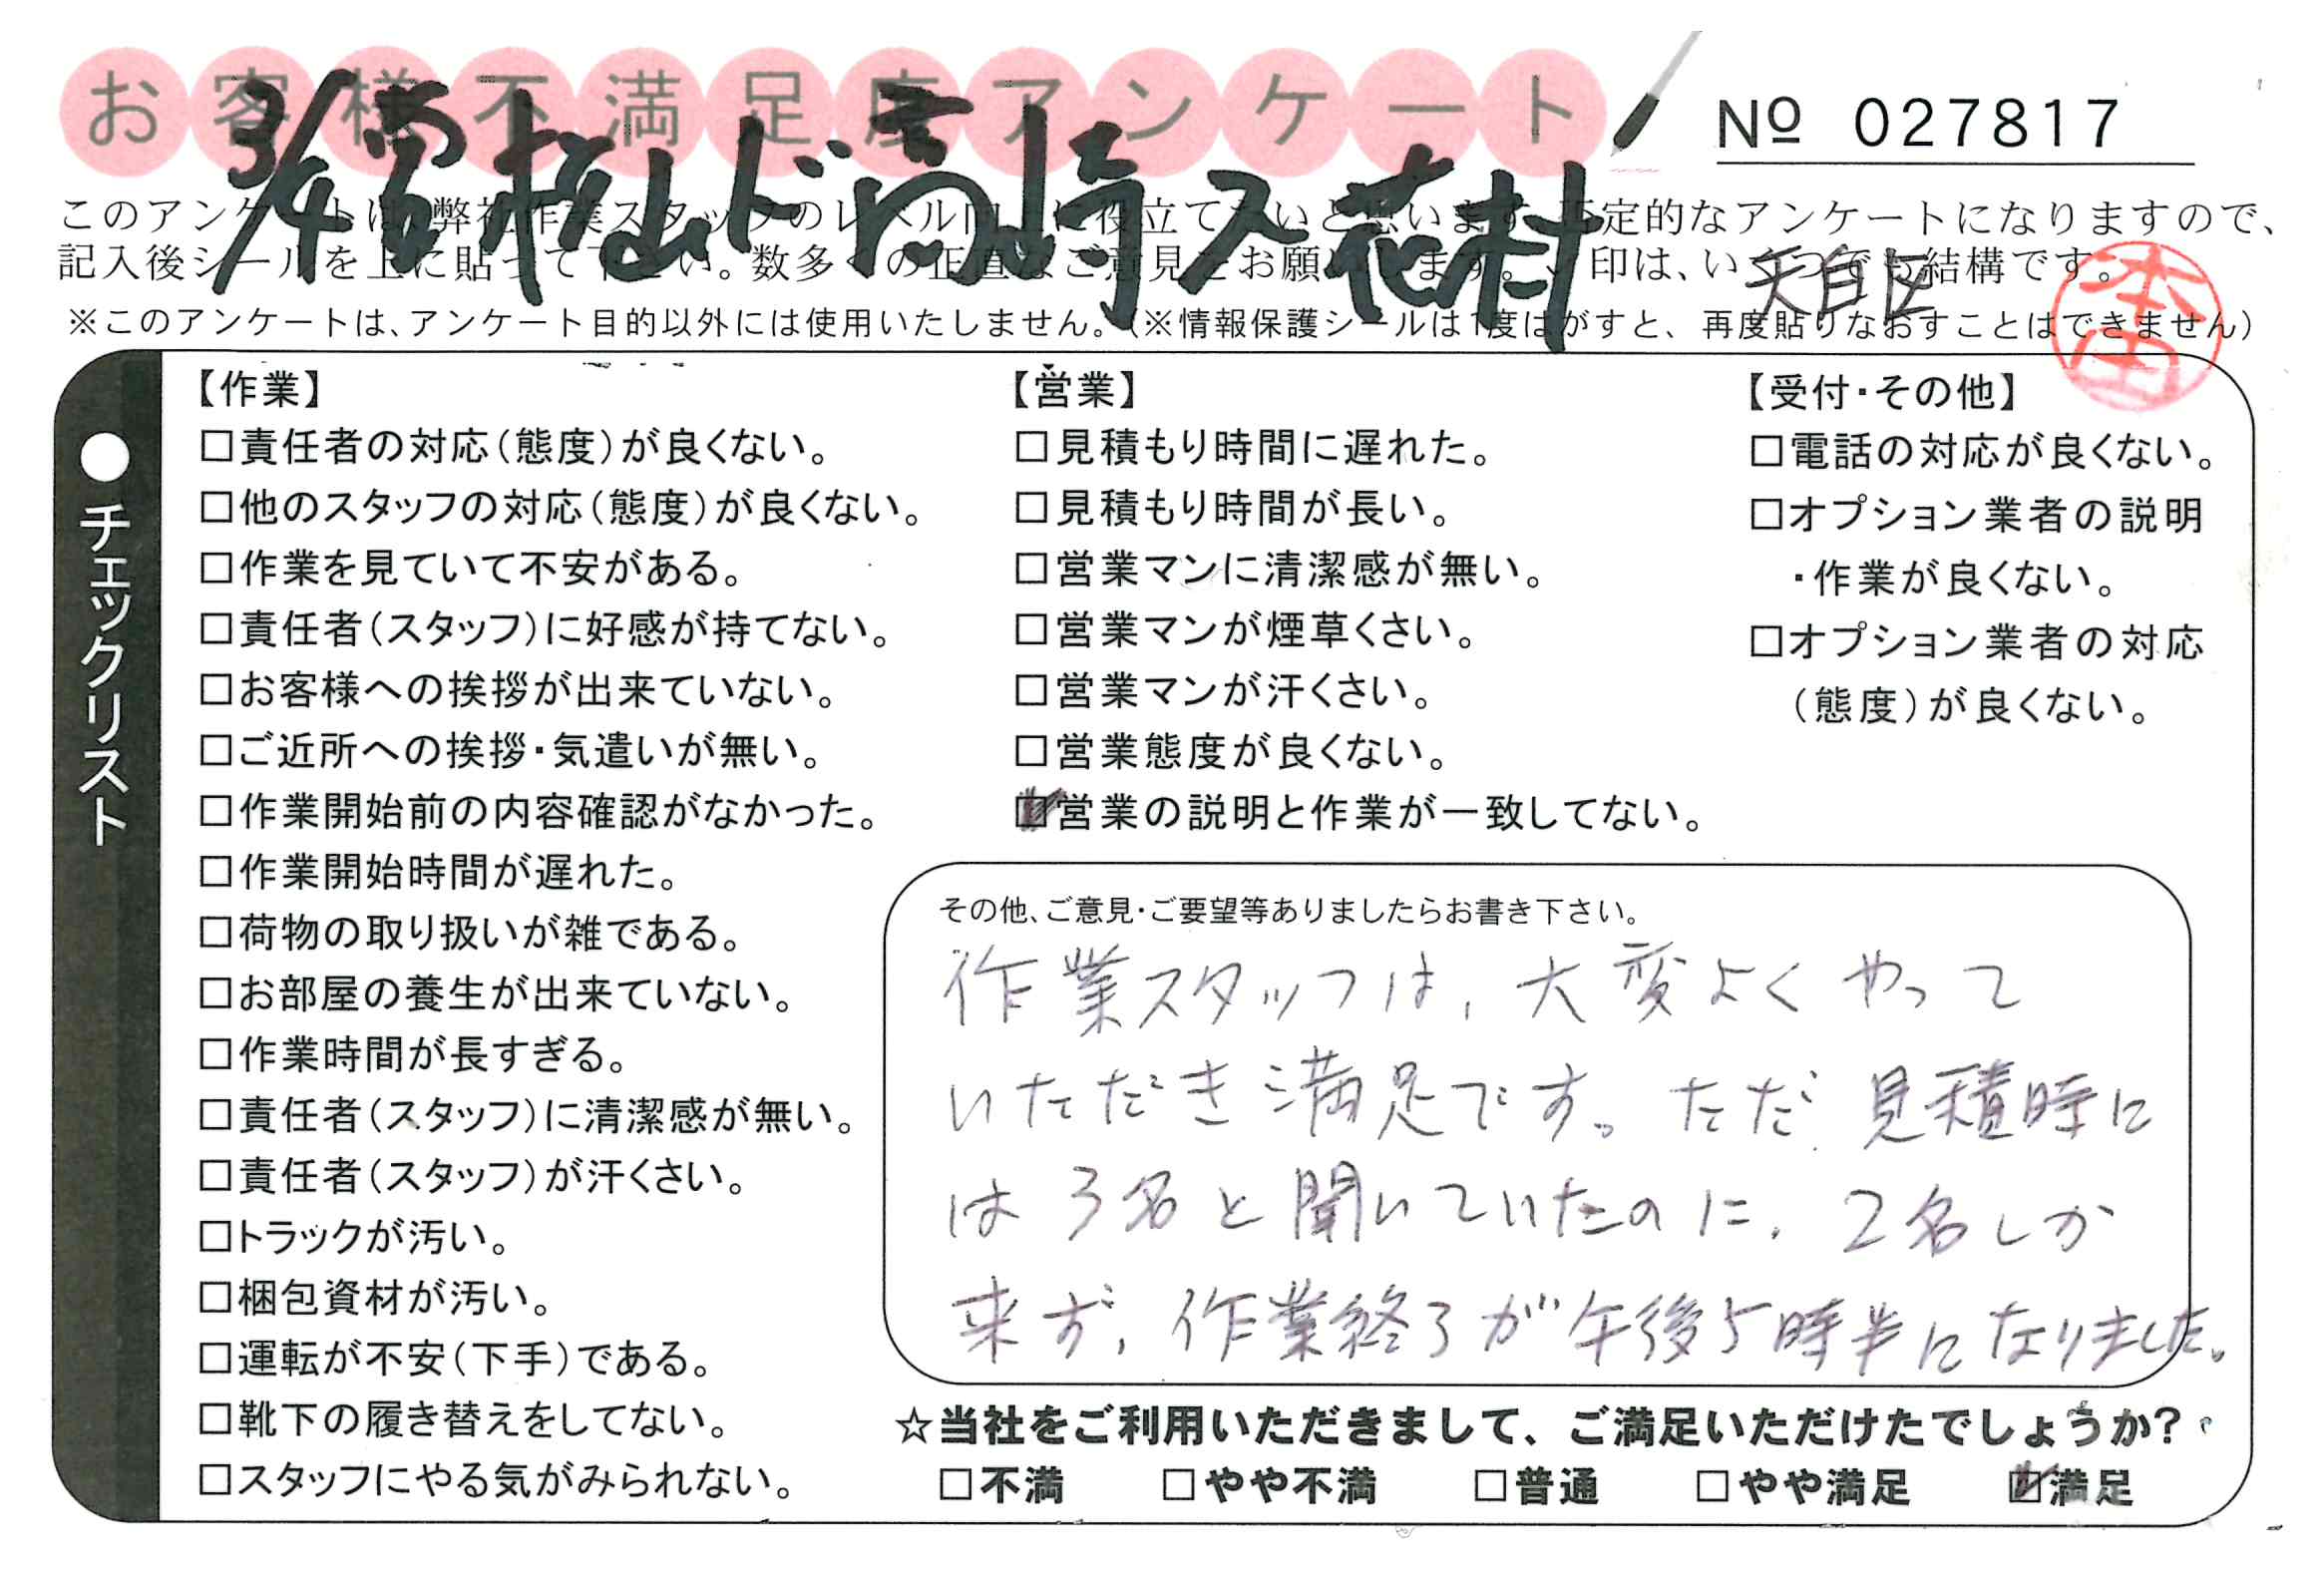 お客様不満足度アンケート
№ 027817
3/4 営 桜山 ド 高崎 ス 花村
このアンケートは、弊社作業スタッフのレベル向上に役立てたいと思います。否定的なアンケートになりますので、
記入後シールを上に貼って下さい。数多くの正直なご意見をお願いします。✓印は、いくつでも結構です。
天白区
本田
※このアンケートは、アンケート目的以外には使用いたしません。(※情報保護シールは1度はがすと、再度貼りなおすことはできません)
●チェックリスト
【作業】
□責任者の対応(態度)が良くない。
□他のスタッフの対応(態度)が良くない。
□作業を見ていて不安がある。
□責任者(スタッフ)に好感が持てない。
□お客様への挨拶が出来ていない。
□ご近所への挨拶・気遣いが無い。
□作業開始前の内容確認がなかった。
□作業開始時間が遅れた。
□荷物の取り扱いが雑である。
□お部屋の養生が出来ていない。
□作業時間が長すぎる。
□責任者(スタッフ)に清潔感が無い。
□責任者(スタッフ)が汗くさい。
□トラックが汚い。
□梱包資材が汚い。
□運転が不安(下手)である。
□靴下の履き替えをしてない。
□スタッフにやる気がみられない。
【営業】
□見積もり時間に遅れた。
□見積もり時間が長い。
□営業マンに清潔感が無い。
□営業マンが煙草くさい。
□営業マンが汗くさい。
□営業態度が良くない。
☑営業の説明と作業が一致してない。
【受付・その他】
□電話の対応が良くない。
□オプション業者の説明
・作業が良くない。
□オプション業者の対応
(態度)が良くない。
その他、ご意見・ご要望等ありましたらお書き下さい。
作業スタッフは、大変よくやって
いただき満足です。ただ、見積時に
は3名と聞いていたのに、2名しか
来ず、作業終了が午後5時半になりました。
☆当社をご利用いただきまして、ご満足いただけたでしょうか?
□不満 □やや不満 □普通 □やや満足 ☑満足